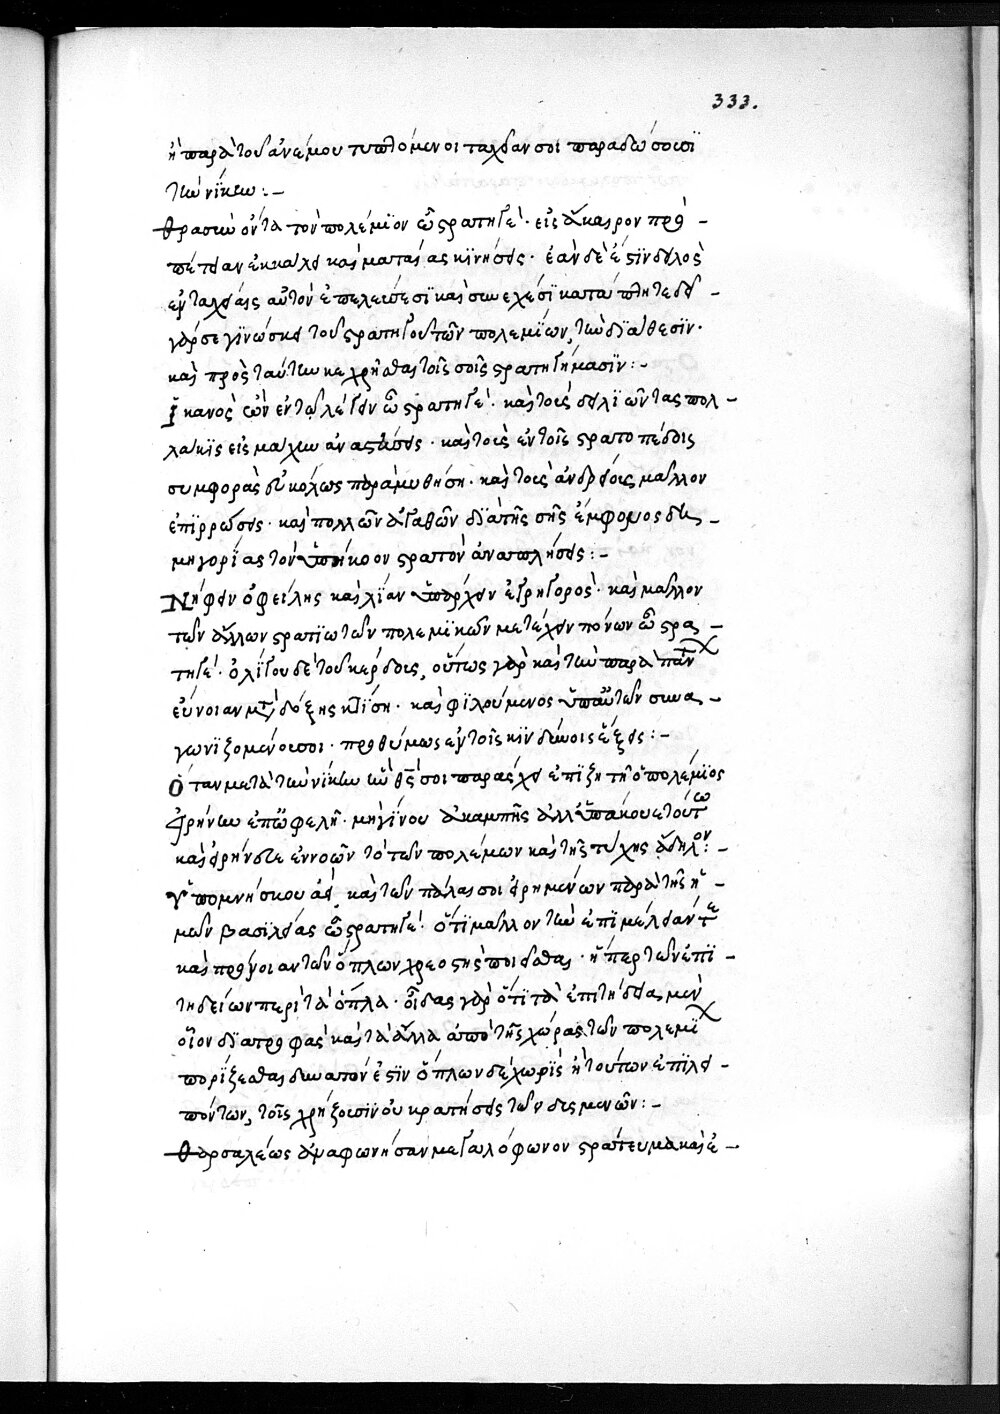 333.
ἢ παρὰ τοῦ ἀνέμου τυπτόμενοι ταχεῖαν σοι παραδώσουσι
τὴν νίκην :-
Θρασὺν ὄντα τὸν πολέμϊον ὦ στρατηγὲ· εἰς ἄκαιρον προ-
πέτειαν ἐκκαλεῖ καὶ ματαίας κϊνήσεις· ἐὰν δὲ ἐστὶν δειλὸς
ἐν ταχείαις αὐτὸν ἐπελεύσεσϊ καὶ συνεχέσϊ κατάπληττε δεῖ-
γάρ σε γϊνώσκει τοῦ στρατηγοῦ τῶν πολεμΐων, τὴν δϊάθεσϊν·
καὶ πρὸς ταύτην κεχρῆσθαι τοῖς σοῖς στρατηγήμασϊν :-
Ἱκανὸς ὢν ἐν τῷ λέγειν ὦ στρατηγὲ· καὶ τοὺς δειλϊῶντας πολ-
λάκϊς εἰς μάχην ἀναστήσεις· καὶ τοὺς ἐν τοῖς στρατοπέδοις
συμφορὰς εὐκόλως παραμυθήση· καὶ τοὺς ἀνδρείους μᾶλλον
ἐπϊρρώσεις· καὶ πολλῶν ἀγαθῶν δϊὰ τῆς σῆς ἔμφρονος δη-
μηγορίας τὸν ὑπήκοον στρατὸν ἀναπλήσεις :-
Νήφειν ὀφείλης καὶ λΐαν ὑπάρχειν ἐγρήγορος· καὶ μᾶλλον
τῶν ἄλλων στρατϊωτῶν πολεμϊκῶν μετέχειν πόνων ὦ στρα-
τηγὲ· ὀλΐγου δὲ τοῦ κέρδους, οὕτως γὰρ καὶ τὴν παρὰ πάντ
εὔνοιαν μετὰ δόξης κτΐση· καὶ φϊλούμενος ὑπ' αὐτῶν συνα-
γωνϊζομένους σοι· προθύμως ἐν τοῖς κϊνδύνοις ἕξεις :-
Ὅταν μετὰ τὴν νΐκην ἣν θς σοι παράσχει ἐπϊζητῆ ὁ πολέμϊος
εἰρήνην ἐπωφελῆ· μὴ γΐνου ἀκαμπὴς ἀλλ' ὑπάκουε τούτω
καὶ εἰρήνευε ἐννοῶν τὸ τῶν πολέμων καὶ τῆς τύχης ἄδηλον :-
Ὑπομνήσκου ἀεὶ, καὶ τῶν πάλαι σοι εἰρημένων παρὰ τῆς ἡ-
μῶν βασϊλείας ὦ στρατηγὲ· ὅτϊ μᾶλλον τὴν ἐπϊμέλειάν τε
καὶ πρόνοιαν τῶν ὅπλων χρεοστὴς ποιεῖσθαι· ἤπερ τῶν ἐπϊ-
τηδείων περὶ τὰ ὅπλα· οἶδας γὰρ ὅτϊ τὰ ἐπϊτήδεια μὲν
οἷον δϊατροφὰς καὶ τὰ ἄλλα ἀπὸ τῆς χώρας τῶν πολεμΐ
πορΐζεσθαι δυνατόν ἐστϊν ὅπλων δὲ χωρὶς ἢ τούτων ἐπϊλει-
πόντων, τοῖς χρήζουσϊν οὐ κρατήσεις τῶν δυσμενῶν :-
Θαρσαλέως ἀναφωνῆσαν μεγαλόφωνον στράτευμα καὶ ἐ-